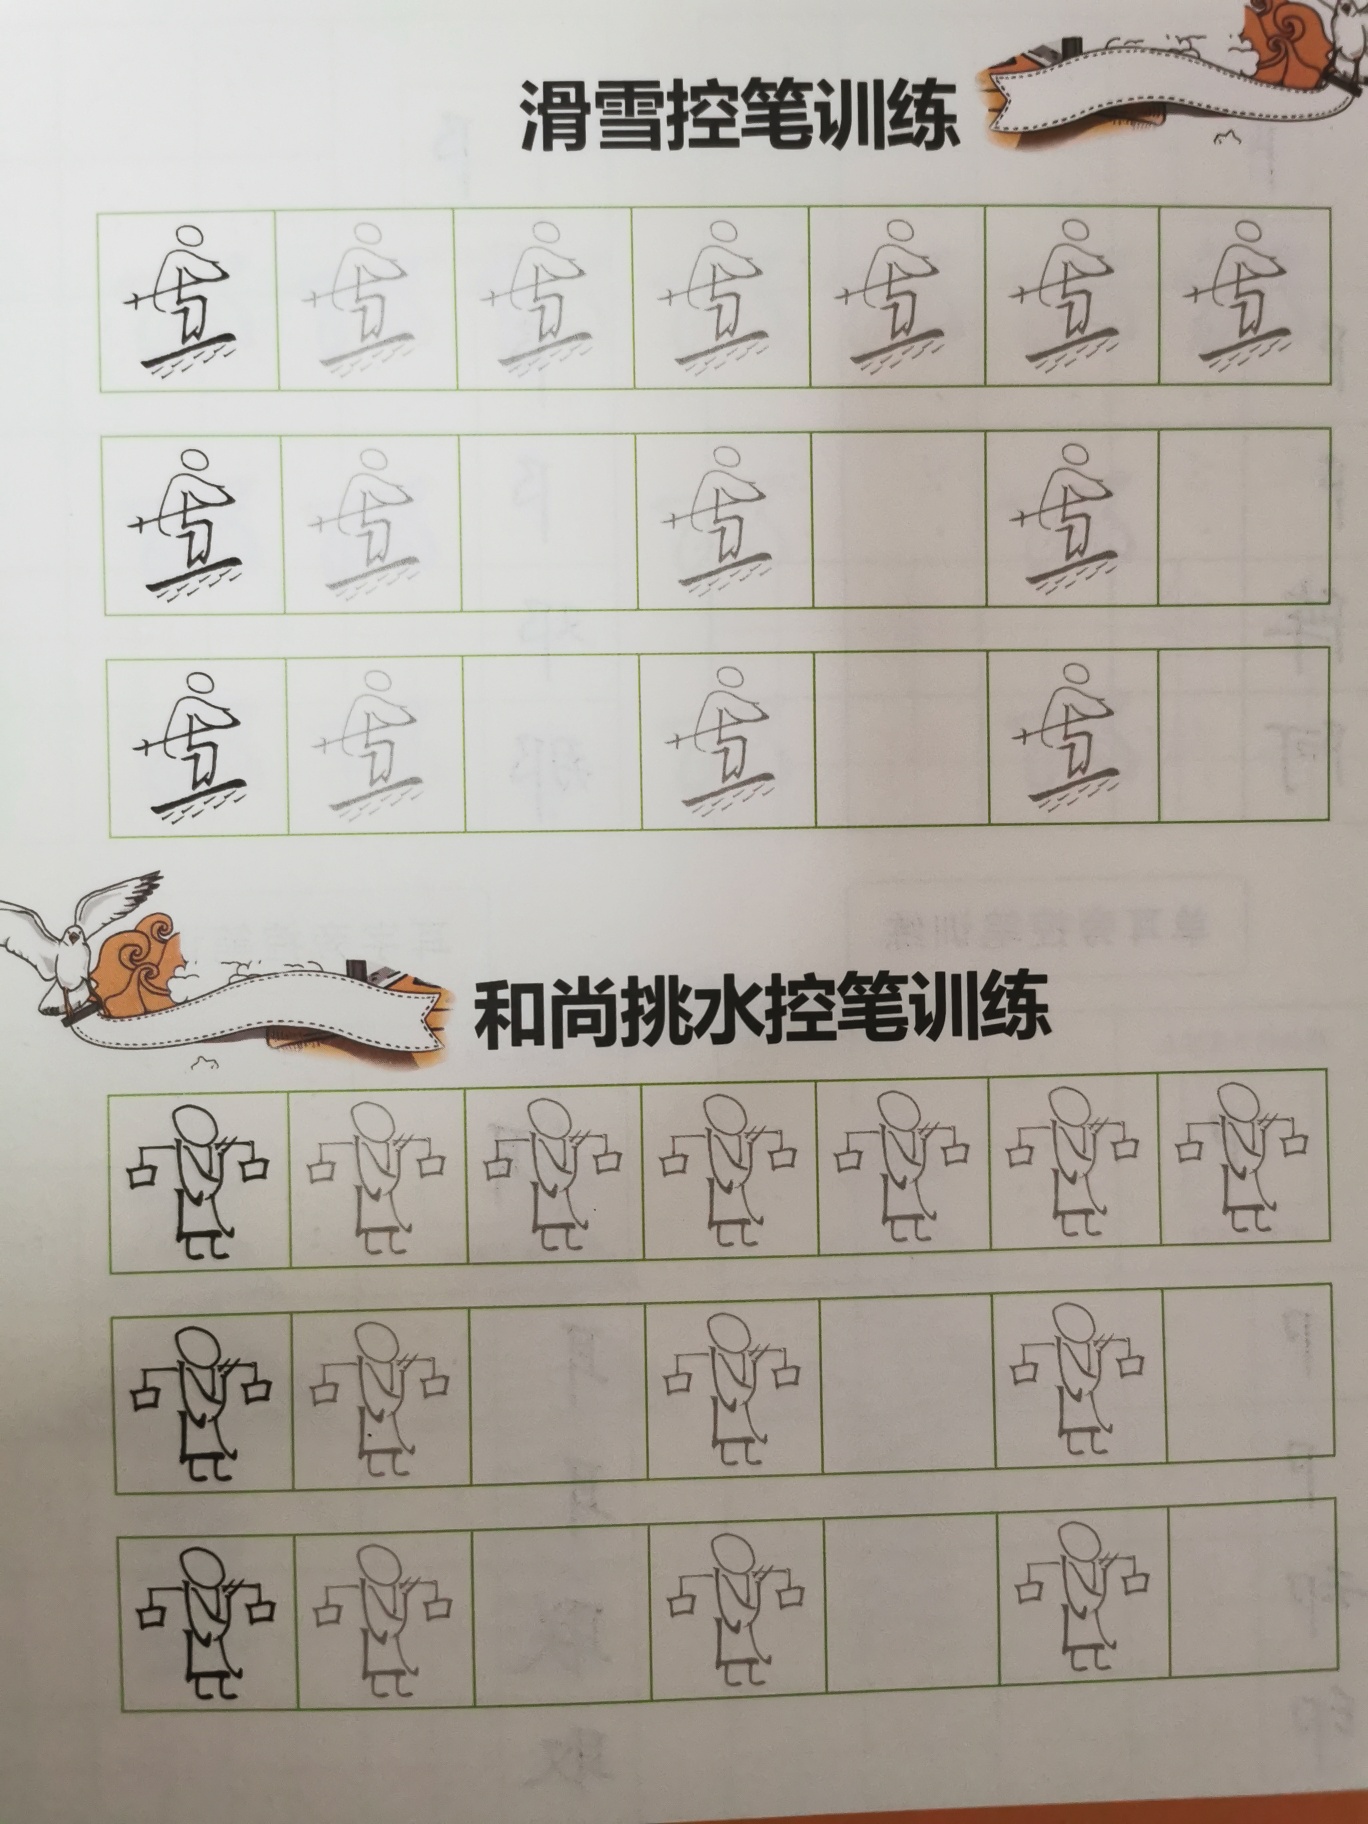 滑雪控笔训练
和尚挑水控笔训练